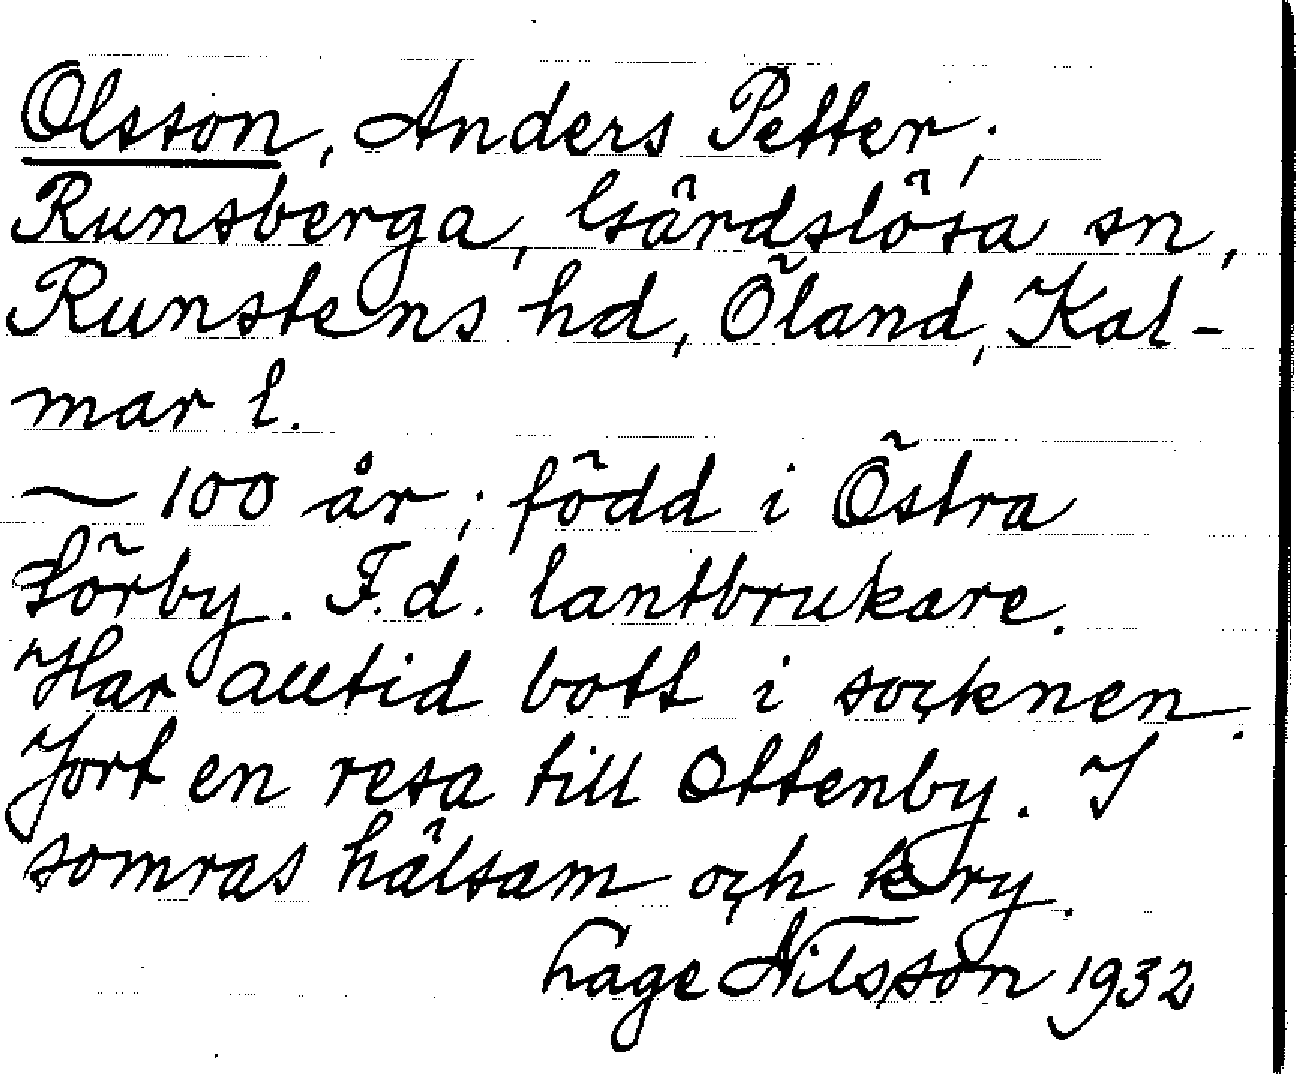 Olsson, Anders Petter;
Runsberga, Gärdslösa sn,
Runstens hd, Öland, Kal-
mar l.
~ 100 år; född i Östra
Sörby. F.d. lantbrukare.
Har alltid bott i socknen.
Gjort en resa till Ottenby. I
somras hälsam och kry.
Lage Nilsson 1932